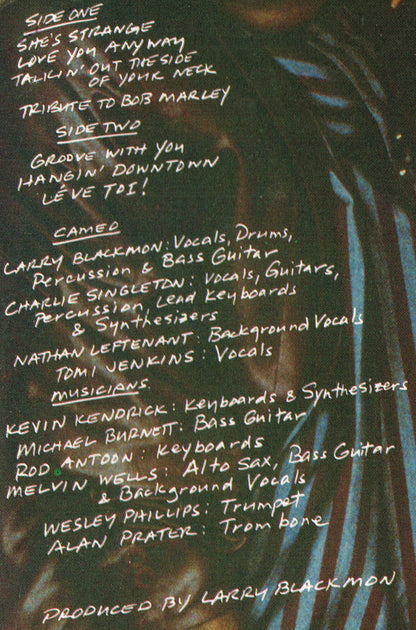 SIDE ONE
SHE'S STRANGE
LOVE YOU ANYWAY
TALKIN' OUT THE SIDE
OF YOUR NECK
TRIBUTE TO BOB MARLEY
SIDE TWO
GROOVE WITH YOU
HANGIN' DOWNTOWN
LÉVE TOI!
CAMEO
LARRY BLACKMON: Vocals, Drums,
Percussion & Bass Guitar
CHARLIE SINGLETON: Vocals, Guitars,
Percussion, Lead Keyboards
& Synthesizers
NATHAN LEFTENANT: Background Vocals
TOMI JENKINS: Vocals
MUSICIANS
KEVIN KENDRICK: Keyboards & Synthesizers
MICHAEL BURNETT: Bass Guitar
ROD ANTOON: Keyboards
MELVIN WELLS: Alto Sax, Bass Guitar
& Background Vocals
WESLEY PHILLIPS: Trumpet
ALAN PRATER: Trombone
PRODUCED BY LARRY BLACKMON